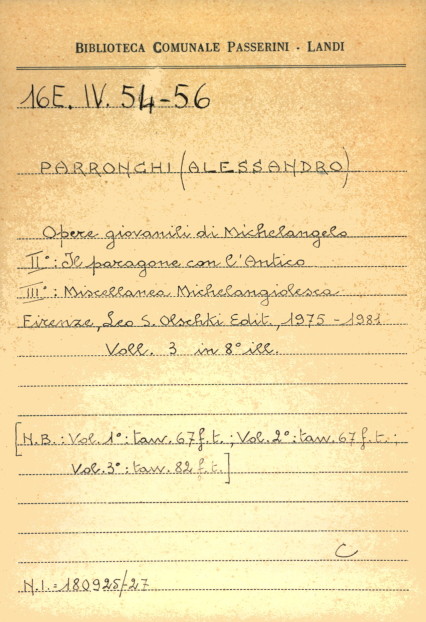 BIBLIOTECA COMUNALE PASSERINI - LANDI
16E. IV. 54-56
PARRONCHI (ALESSANDRO)
Opere giovanili di Michelangelo
II°: Il paragone con l'Antico
III°: Miscellanea Michelangiolesca
Firenze, Leo S. Olschki Edit., 1975 - 1981
Voll. 3 in 8° ill.
[N.B.: Vol. 1°: tav. 67 f.t.; Vol. 2°: tav. 67 f.t.;
Vol. 3°: tav. 82 f.t.]
C
N.I. = 180925/27